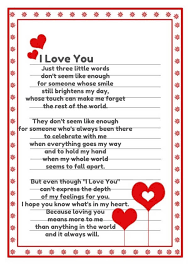 I Love You
Just three little words
don't seem like enough
for someone whose smile
still brightens my day,
whose touch can make me forget
the rest of the world.
They don't seem like enough
for someone who's always been there
to celebrate with me
when everything goes my way
and to hold my hand
when my whole world
seems to fell apart.
But even though "I Love You"
can't express the depth
of my feelings for you.
I hope you know what's in my heart.
Because loving you
means more to me
than anything in the world
and it always will.